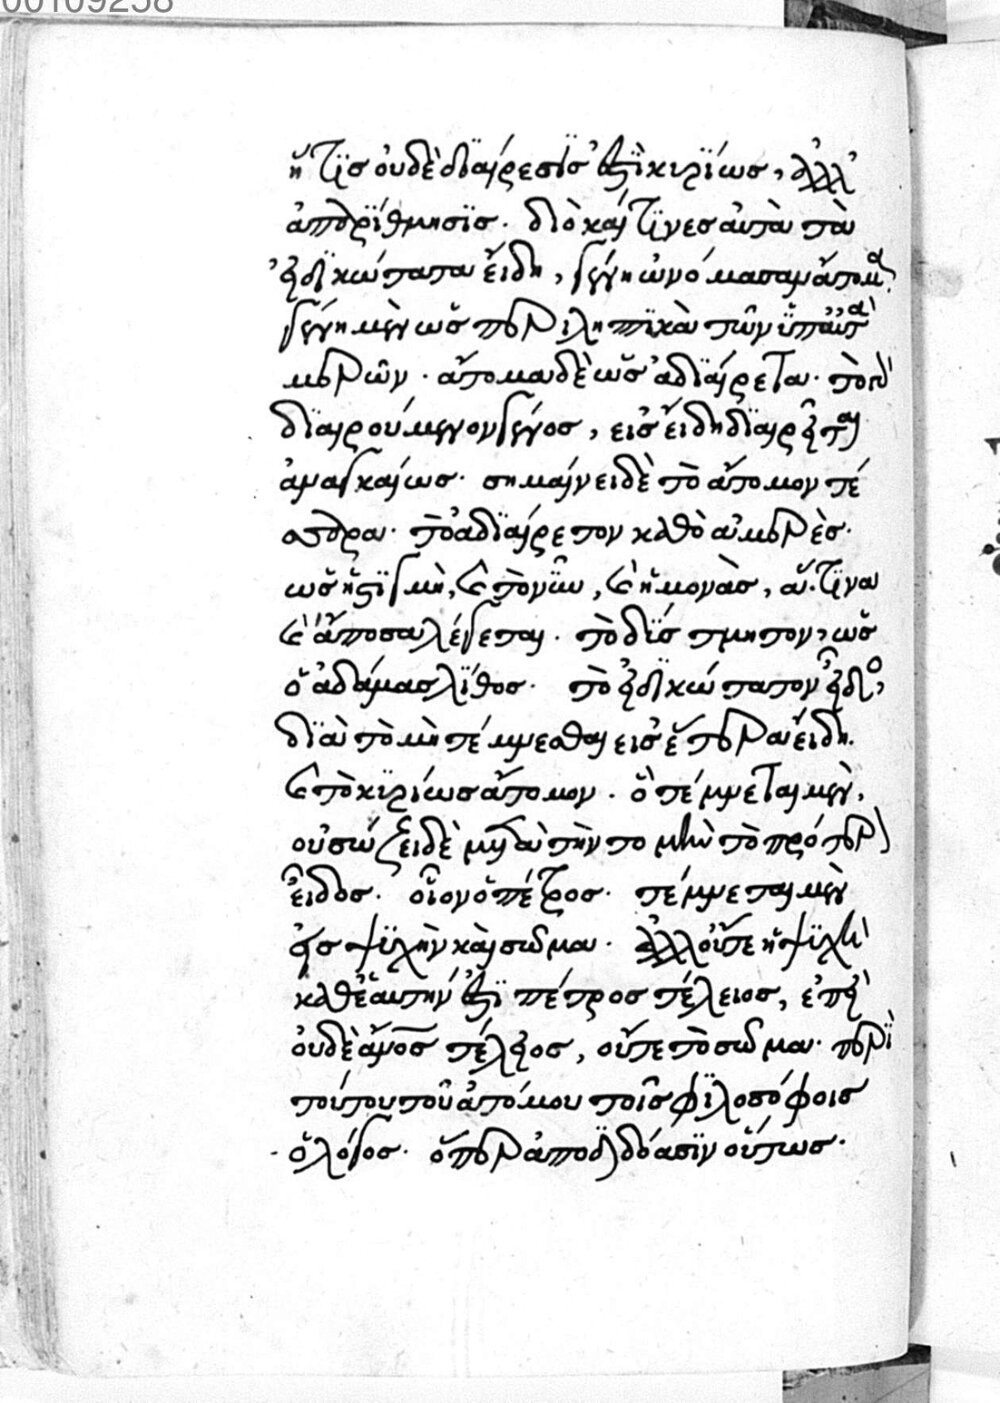 00109258
ἥτϊς οὐδὲ διαίρεσίς ἐστϊ κυρΐως, ἀλλ'
ἀπαρΐθμησϊς. διὸ καί τϊνες αὐτὰ τὰ
εἰδϊκώτατα εἴδη, γένη ὠνόμασαν ἄτομα,
γένη μὲν ὡς περιληπτϊκὰ τῶν ὑπ' αὐτὰ
μερῶν. ἄτομα δὲ ὡς ἀδϊαίρετα. τὸ
δϊαιρούμενον γένος, εἰς εἴδη δϊαιρεῖται
ἀναγκαίως. σημαίνει δὲ τὸ ἄτομον τέ
σσαρα. τὸ ἀδϊαίρετον καθὸ ἀμερὲς.
ὡς ἡ στϊγμὴ, καὶ τὸ νῦν, καὶ ἡ μονὰς, ἅτϊνα
καὶ ἄποσα λέγεται. τὸ δύστμητον, ὡς
ὁ ἀδάμας λΐθος. τὸ εἰδϊκώτατον εἶδος,
δϊὰ τὸ μὴ τέμνεσθαι εἰς ἕτερα εἴδη.
καὶ τὸ κυρίως ἄτομον. ὃ τέμνεται μὲν,
οὐ σώζει δὲ μετὰ τὴν τομὴν τὸ πρότερον
εἶδος. οἷον ὁ πέτρος. τέμνεται μὲν
εἰς ψϋχὴν καὶ σῶμα. ἀλλ' οὔτε ἡ ψϋχὴ
καθ' ἑαυτήν ἐστϊ πέτρος τέλειος, ἐπεὶ
οὐδὲ ἄνος τέλειος, οὔτε τὸ σῶμα. περὶ
τούτου τοῦ ἀτόμου τοῖς φϊλοσόφοις
ὁ λόγος. ὅπερ ἀποδϊδόασϊν οὕτως.